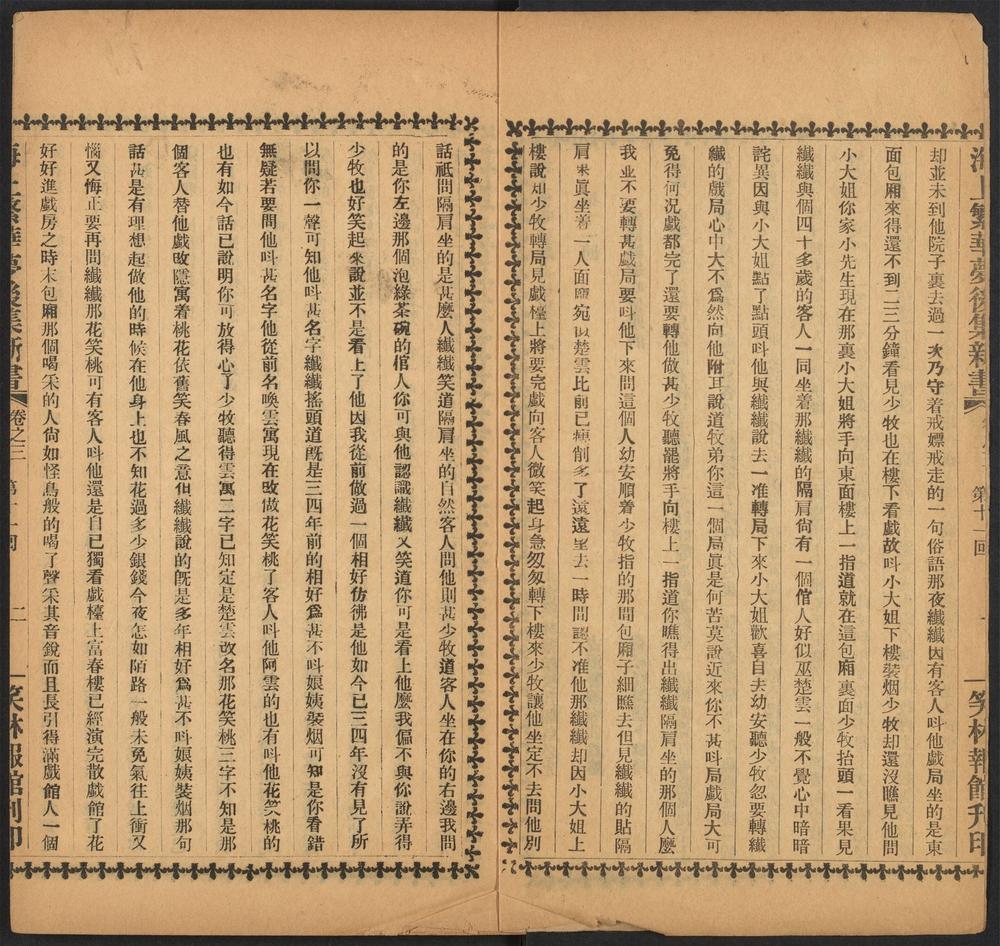 海上繁華夢後集新書 第十 回 笑林報館刊印
却並未到他院子裏去過一次乃守着戒嫖戒走的一句俗語那夜纖纖因有客人呌他戲局坐的是東
面包廂來得還不到二三分鐘看見少牧也在樓下看戲故呌小大姐下樓裝烟少牧却還沒瞧見他問
小大姐你家小先生現在那裏小大姐將手向東面樓上一指道就在這包廂裏面少牧抬頭一看果見
纖纖與個四十多歲的客人一同坐着那纖纖的隔肩尙有一個倌人好似巫楚雲一般不覺心中暗暗
詫異因與小大姐點了點頭呌他與纖纖說去一准轉局下來小大姐歡喜自去幼安聽少牧忽要轉纖
纖的戲局心中大不爲然向他附耳說道牧弟你這一個局眞是何苦莫說近來你不甚呌局戲局大可
免得何况戲都完了還要轉他做甚少牧聽罷將手向樓上一指道你瞧得出纖纖隔肩坐的那個人麼
我並不要轉甚戲局要呌他下來問這個人幼安順着少牧指的那間包廂子細瞧去但見纖纖的貼隔
肩果眞坐着一人面龐宛似楚雲比前已瘦削多了遠遠里去一時間認不准他那纖纖却因小大姐上
樓說知少牧轉局見戲檯上將要完戲向客人微笑起身急匆匆轉下樓來少牧讓他坐定不去問他別
話祇問隔肩坐的是甚麼人纖纖笑道隔肩坐的自然客人問他則甚少牧道客人坐在你的右邊我問
的是你左邊那個泡綠茶碗的倌人你可與他認識纖纖又笑道你可是看上他麼我偏不與你說弄得
少牧也好笑起來說並不是看上了他因我從前做過一個相好仿彿是他如今已三四年沒有見了所
以問你一聲可知他呌甚名字纖纖搖頭道旣是三四年前的相好爲甚不呌娘姨裝烟可知是你看錯
無疑若要問他呌甚名字他從前名喚雲寓現在改做花笑桃了客人呌他阿雲的也有呌他花笑桃的
也有如今話已說明你可放得心了少牧聽得雲寓二字已知定是楚雲改名那花笑桃三字不知是那
個客人替他戲改隱寓着桃花依舊笑春風之意但纖纖說的旣是多年相好爲甚不呌娘姨裝烟那句
話甚是有理想起做他的時候在他身上也不知花過多少銀錢今夜怎如陌路一般未免氣往上衝又
惱又悔正要再問纖纖那花笑桃可有客人呌他還是自已獨看戲檯上富春樓已經演完散戲館了花
好好進戲房之時末包廂那個喝采的人尙如怪鳥般的喝了聲采其音銳而且長引得滿戲館人一個
海上繁華夢後集新書 卷之三 第十一回 二 笑林報館刊印